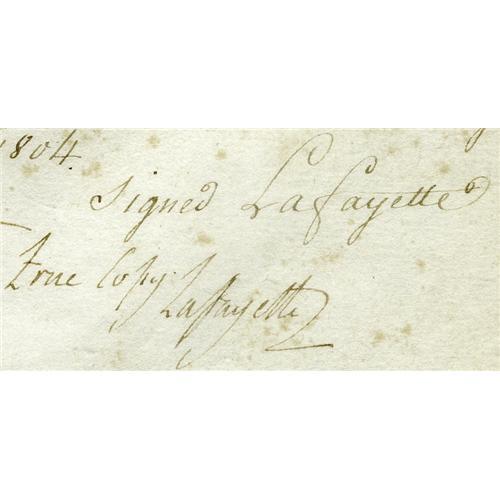 1804.
signed LaFayette
true Copy
Lafayette